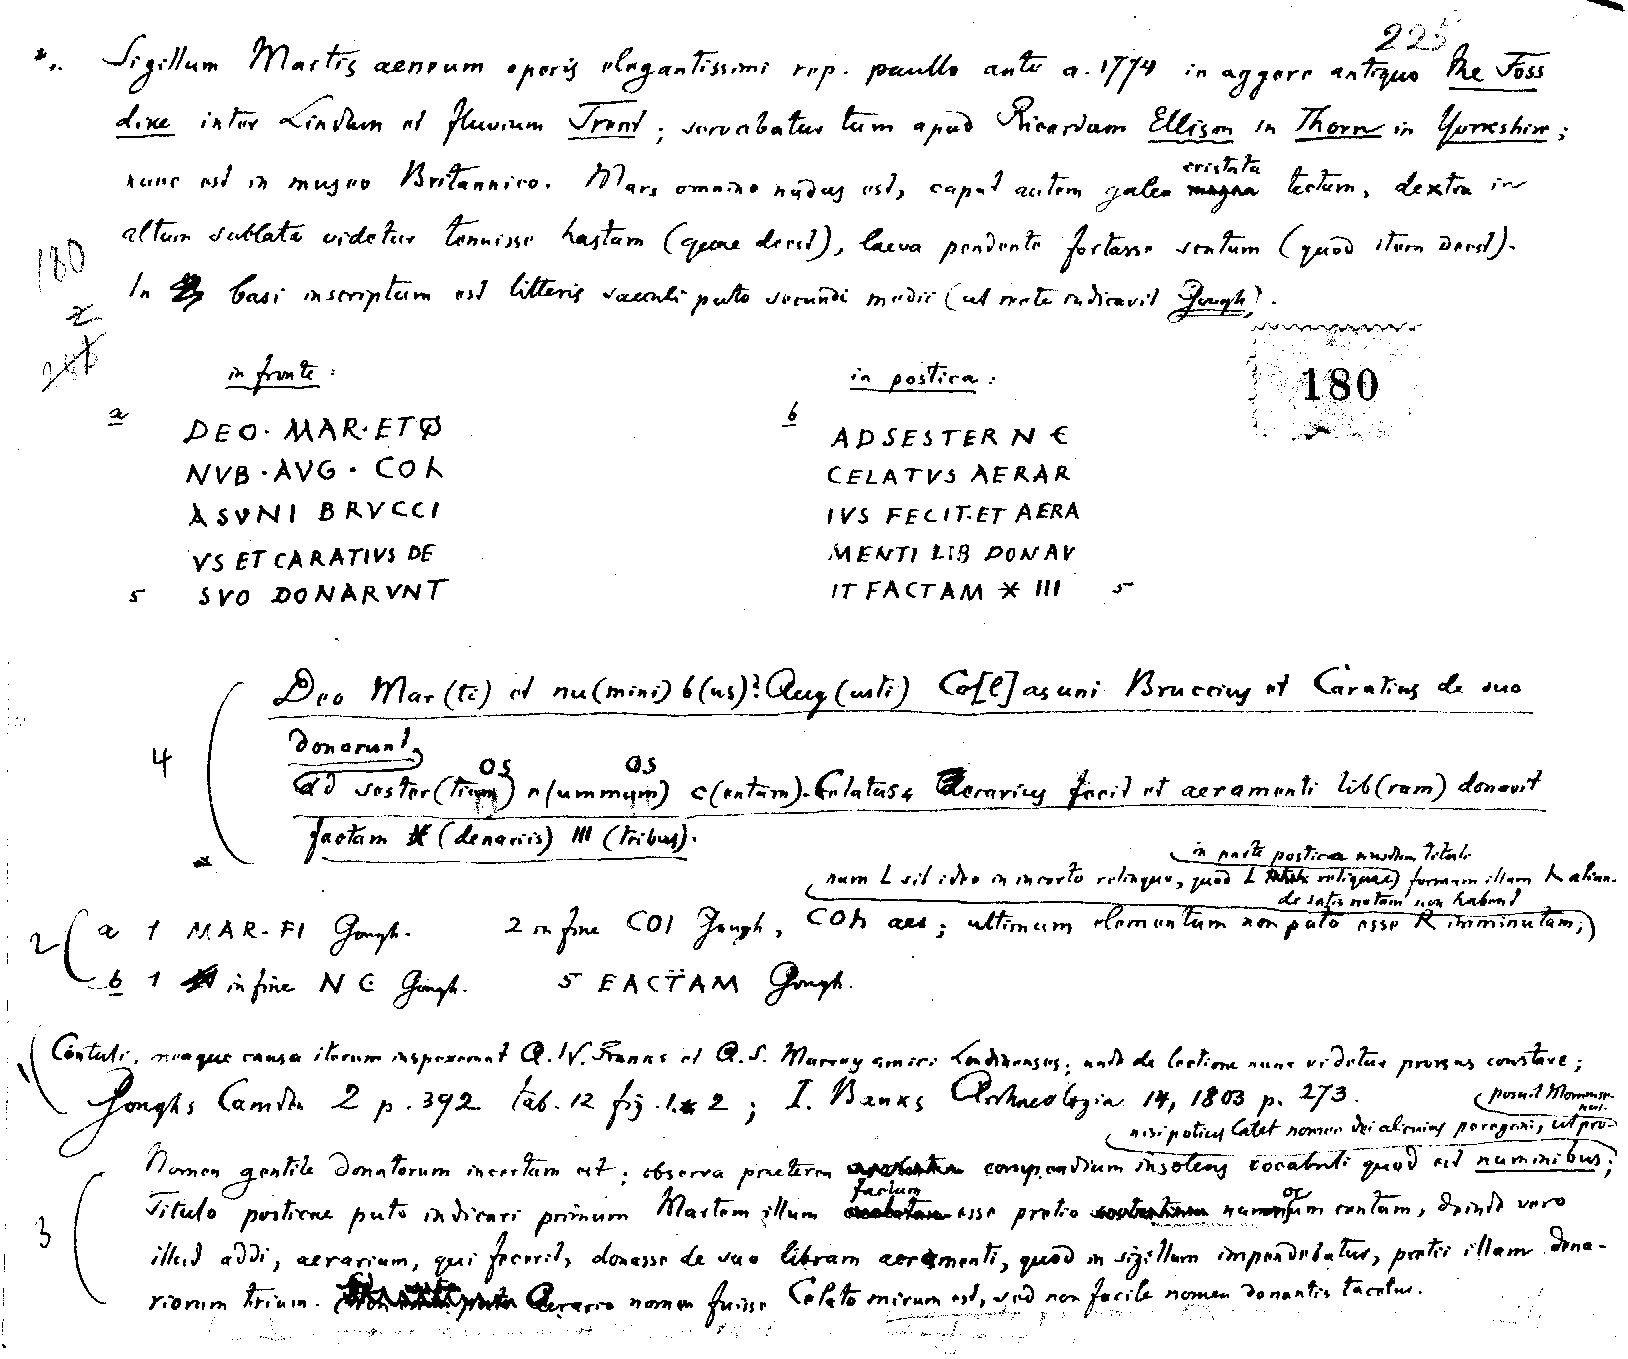 225
Sigillum Martis aeneum operis elegantissimi rep. paullo ante a. 1774 in aggere antiquo the Foss
dike inter Lindum et fluvium Trent; servabatur tum apud Ricardum Ellison in Thorn in Yorkshire;
nunc est in museo Britannico. Mars omnino nudus est, caput autem galea cristata tectum, dextra in
altum sublata videtur tenuisse hastam (quae deest), laeva pendente fortasse scutum (quod item deest).
180
In basi inscriptum est litteris saeculi puto secundi medii (ut recte indicavit Gough).
in fronte:
in postica:
180
a
b
DEO · MAR · ET
ADSESTER N C
NVB · AVG · COL
CELATVS AERAR
ASVNI BRVCCI
IVS FECIT · ET AERA
VS ET CARATIVS DE
MENTI LIB DONAV
5 SVO DONARVNT
IT FACTAM ӿ III 5
4
Deo Mar(ti) et nu(mini)b(us)? Aug(usti) Co[l]asuni Bruccius et Caratius de suo
donarunt
os os
ad sester(tios) n(ummos) c(entum). Celatus aerarius fecit et aeramenti lib(ram) donavit
factam ӿ (denariis) III (tribus).
in parte postica eiusdem tituli
num L sit ideo in incerto relinquo, quod L reliquae formam illam alium-
de satis notam non habent
2 a 1 MAR · FI Gough. 2 in fine COI Gough, COL aes; ultimum elementum non puto esse R imminutam;)
b 1 in fine N C Gough. 5 EACTAM Gough.
1 Contuli, meaque causa iterum inspexerunt A. W. Franks et A. S. Murray amici Londinenses, unde de lectione nunc videtur prorsus constare;
Goughs Camden 2 p. 392 tab. 12 fig. 1. 2; I. Banks Archaeologia 14, 1803 p. 273.
posuit Mommse-
nus.
nisi potius latet nomen dei alicuius peregrini, ut pro-
3
Nomen gentile donatorum incertum est; observa praeterea compendium insolens vocabuli quod est numinibus;
factum
Titulo posticae puto indicari primum Martem illum esse pretio nummorum centum, deinde vero
illud addi, aerarium, qui fecerit, donasse de suo libram aeramenti, quod in sigillum impendebatur, pretii illam dena-
riorum trium. Aerario nomen fuisse Celato mirum est, sed non facile nomen donantis tacetur.